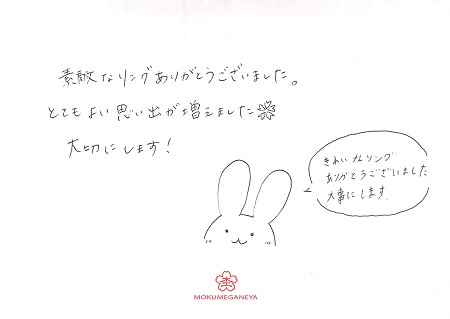 素敵なリングありがとうございました。
とてもよい思い出が増えました
大切にします!
きれいなリング
ありがとうございました
大事にします。
杢
MOKUMEGANEYA